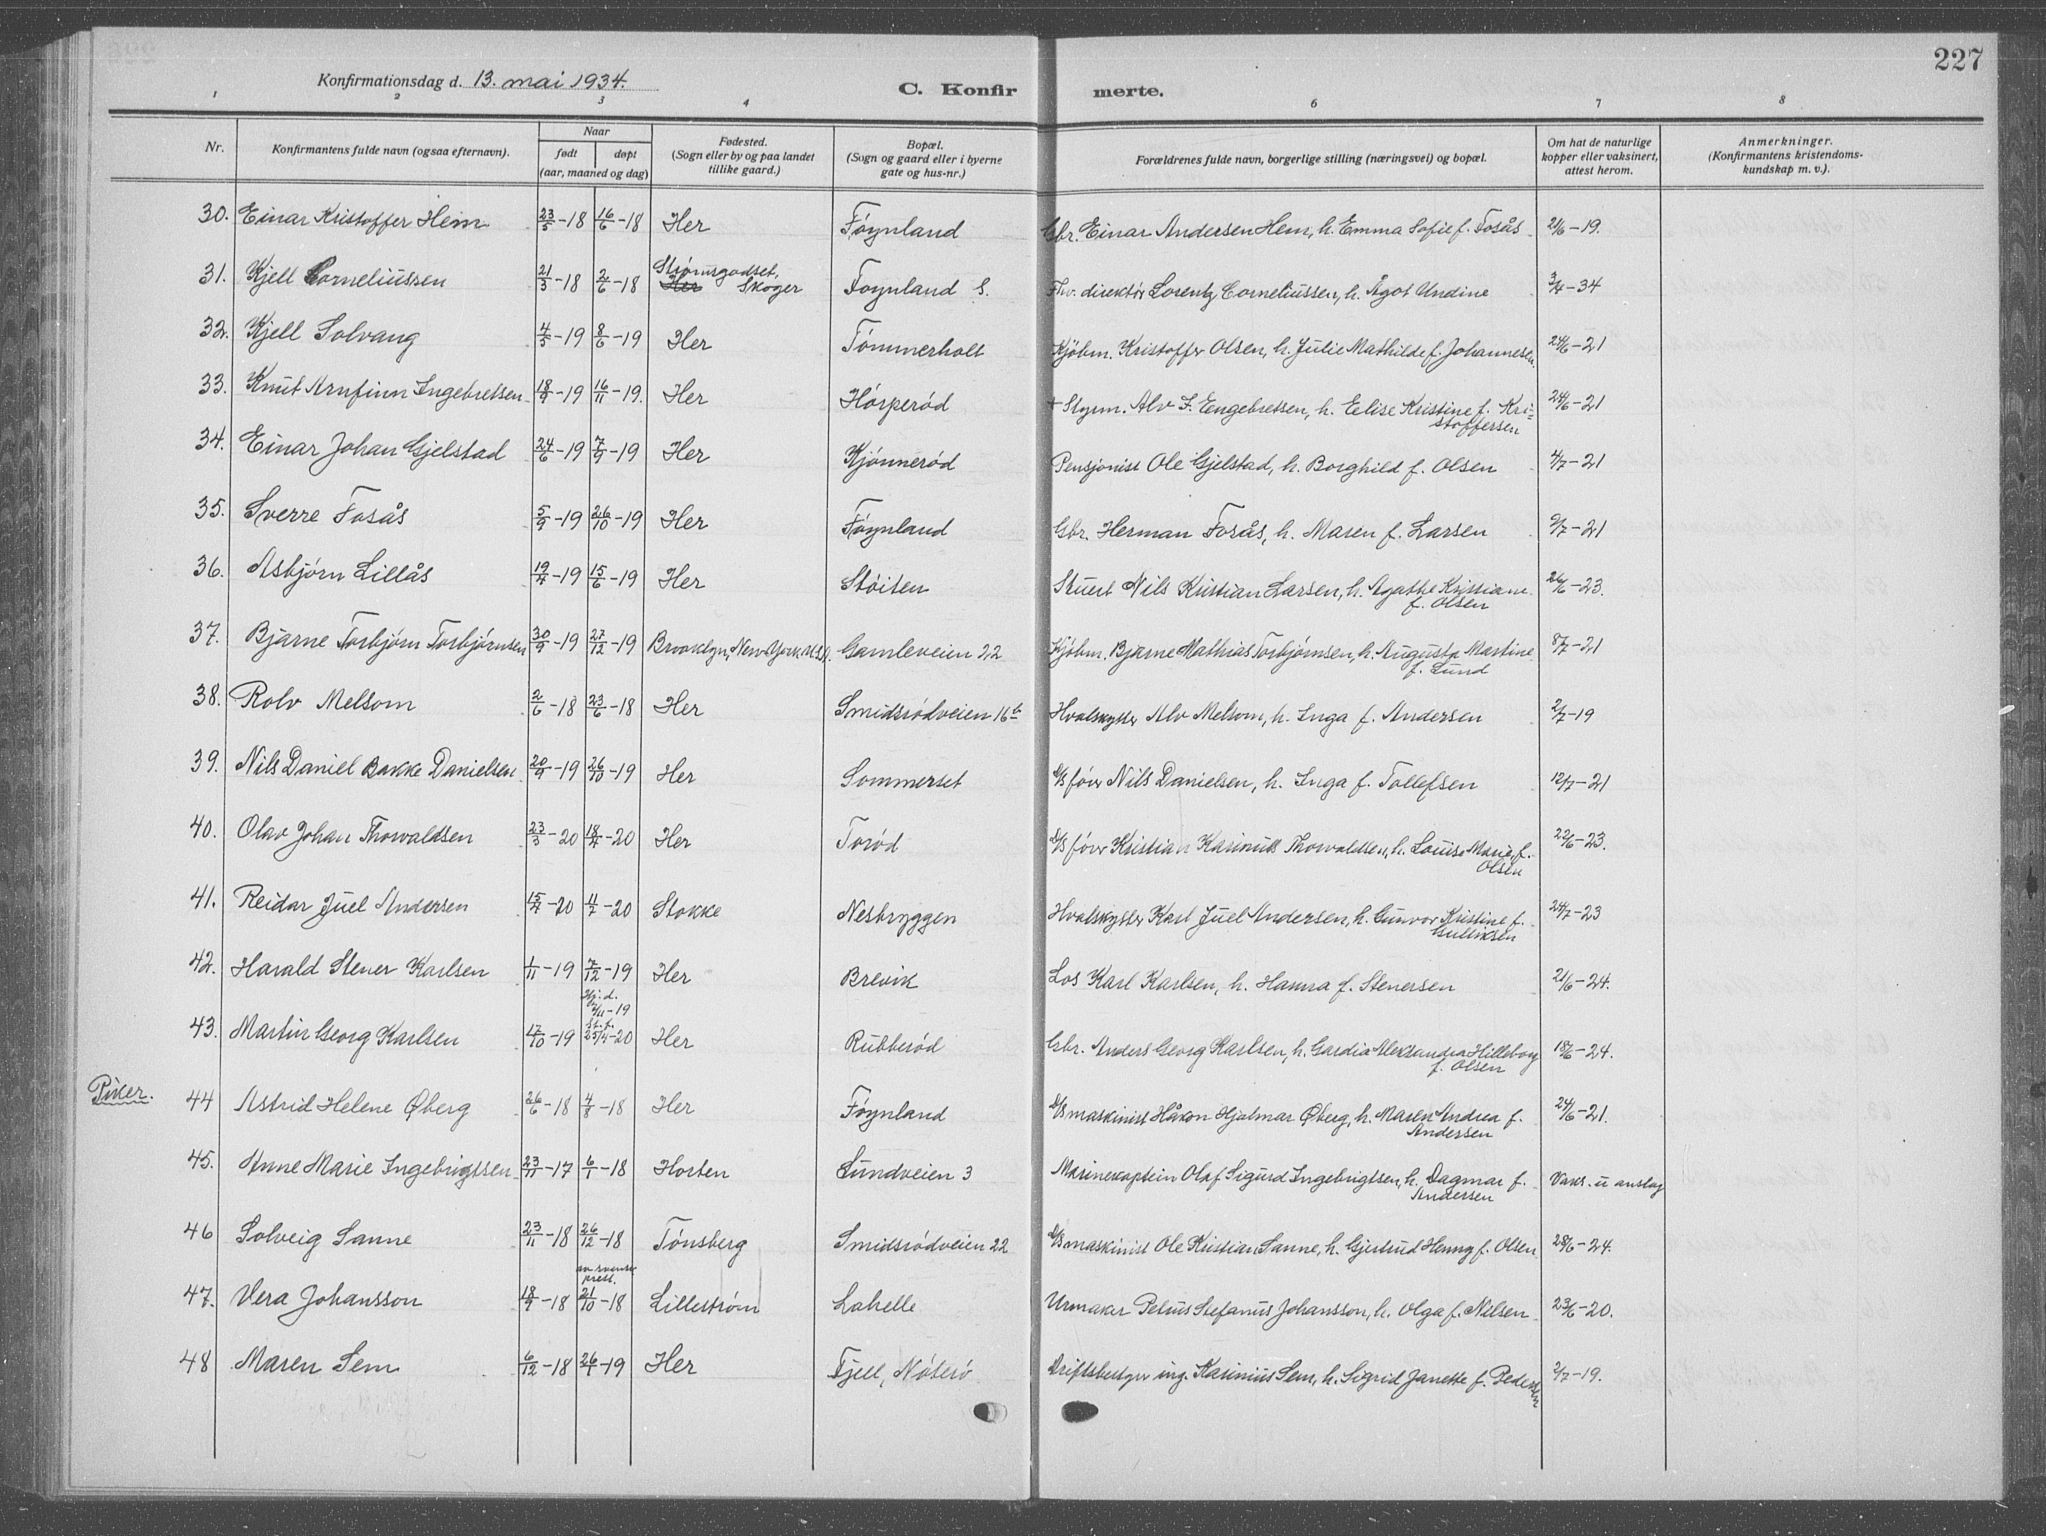 227
Konfirmationsdag d. 13. mai 1934.
C. Konfirmerte.
1 2 3 4 6 7 8
Nr.
Konfirmantens fulde navn (ogsaa efternavn).
Naar
født døpt
(aar, maaned og dag)
Fødested.
(Sogn eller by og paa landet
tillike gaard.)
Bopæl.
(Sogn og gaard eller i byerne
gate og hus-nr.)
Forældrenes fulde navn, borgerlige stilling (næringsvei) og bopæl.
Om hat de naturlige
kopper eller vaksinert,
attest herom.
Anmerkninger.
(Konfirmantens kristendoms-
kundskap m. v.).
30. Einar Kristoffer Hem 23/5-18 16/6-18 Her Føynland Gbr. Einar Andersen Hem, h. Emma Sofie f. Fosås 21/6-19.
31. Kjell Corneliussen 21/3-18 2/6-18 Strømsgodset, Her Skoger Føynland S. Fhv. direktør Lorentz Corneliussen, h. Ågot Undine 3/4-34
32. Kjell Solvang 4/5-19 8/6-19 Her Tømmerholt Kjøbm. Kristoffer Olsen, h. Julie Mathilde f. Johannesen 24/6-21
33. Knut Arnfinn Ingebretsen 18/9-19 16/11-19. Her Hørperød + Styrm. Alv F. Engebretsen, h. Eelise Kristine f. Kri=
stoffersen 24/6-21
34. Einar Johan Gjelstad 24/6-19 7/9-19 Her Kjønnerød Pensjonist Ole Gjelstad, h. Borghild f. Olsen 4/7-21
35. Sverre Fosås 5/9-19 26/10-19 Her Føynland Gbr. Herman Fosås, h. Maren f. Larsen 9/7-21
36. Asbjørn Lillås 19/4-19 15/6-19 Her Støiten Stuert Nils Kristian Larsen, h. Agathe Kristiane
f. Olsen 26/6-23.
37. Bjarne Torbjørn Torbjørnsen 30/9-19 27/12-19 Brooklyn, New York. U.S.A. Gamleveien 22 Kjøbm. Bjarne Mathias Torbjørnsen, h. Augusta Martine
f. Lund 8/7-21
38. Rolv Melsom 2/6-18 23/6-18 Her Smidsrødveien 16 b Hvalskytter Alv Melsom, h. Inga f. Andersen 2/7-19
39. Nils Daniel Bakke Danielsen 20/9-19 26/10-19 Her Sommerset S/S fører Nils Danielsen, h. Inga f. Tollefsen 12/7-21
40. Olav Johan Thorvaldsen 23/3-20 18/4-20 Her Torød S/S fører Kristian Karinius Thorvaldsen, h. Louise Marie f.
Olsen 22/6-23.
41. Reidar Juel Andersen 15/4-20 11/7-20 Stokke Nesbryggen Hvalskytter Karl Juel Andersen, h. Gunvor Kristine f.
Gulliksen 24/7-23
42. Harald Stener Karlsen 1/11-19 7/12-19 Her Brevik Los Karl Karlsen, h. Hanna f. Stenersen 21/6-24.
43. Martin Georg Karlsen 17/10-19 Hj.d. 2/11-19 St.f. 25/4-20 Her Rubberød Gbr. Anders Georg Karlsen, h. Gardia Aleksandra Hilleborg
f. Olsen 18/6-24.
Piker.
44 Astrid Helene Øberg 26/6-18 4/8-18 Her Føynland S/S maskinist Håkon Hjalmar Øberg, h. Maren Andrea f.
Andersen 24/6-21.
45. Anne Marie Ingebrigtsen 23/11-17 6/1-18 Horten Lundveien 3 Marinekaptein Olaf Sigurd Ingebrigtsen, h. Dagmar f.
Andersen Vaks. u anslag
46 Solveig Sanne 23/11-18 26/12-18 Tønsberg Smidsrødveien 22 S/S maskinist Ole Kristian Sanne, h. Gjertrud Henny f. Olsen 28/6-24.
47. Vera Johansson 18/9-18 av svensk prest. 21/10-18 Lillestrøm Labelle Urmaker Petrus Stefanus Johansson, h. Olga f. Nilsen 23/6-20.
48 Maren Sem 6/12-18 26/1-19 Her Fjell, Nøterø Driftsbestyrer ing. Karinius Sem, h. Sigrid Janette f. Pedersen 2/7-19.